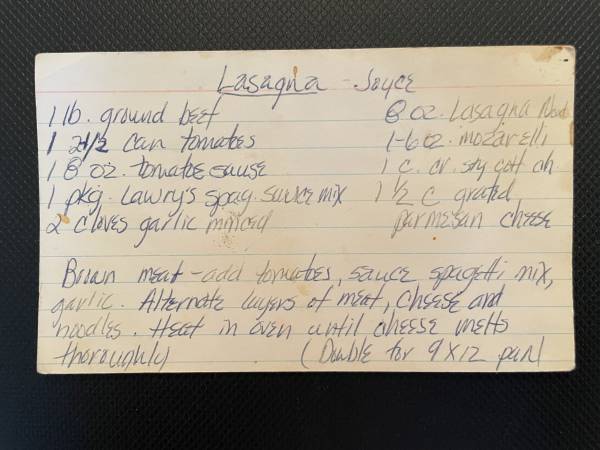 Lasagna - Joyce
1 lb. ground beef
1 2 1/2 can tomatoes
1 8 oz. tomatoe sause
1 pkg. Lawry's spag. sauce mix
2 cloves garlic minced
8 oz. Lasagna Nood
1-6 oz. mozarelli
1 c. cr. sty cott ch
1 1/2 c grated
parmesan cheese
Brown meat - add tomatoes, sauce, spagetti mix,
garlic. Alternate layers of meat, cheese and
noodles. Heat in oven until cheese melts
thoroughly (Double for 9 x 12 pan)